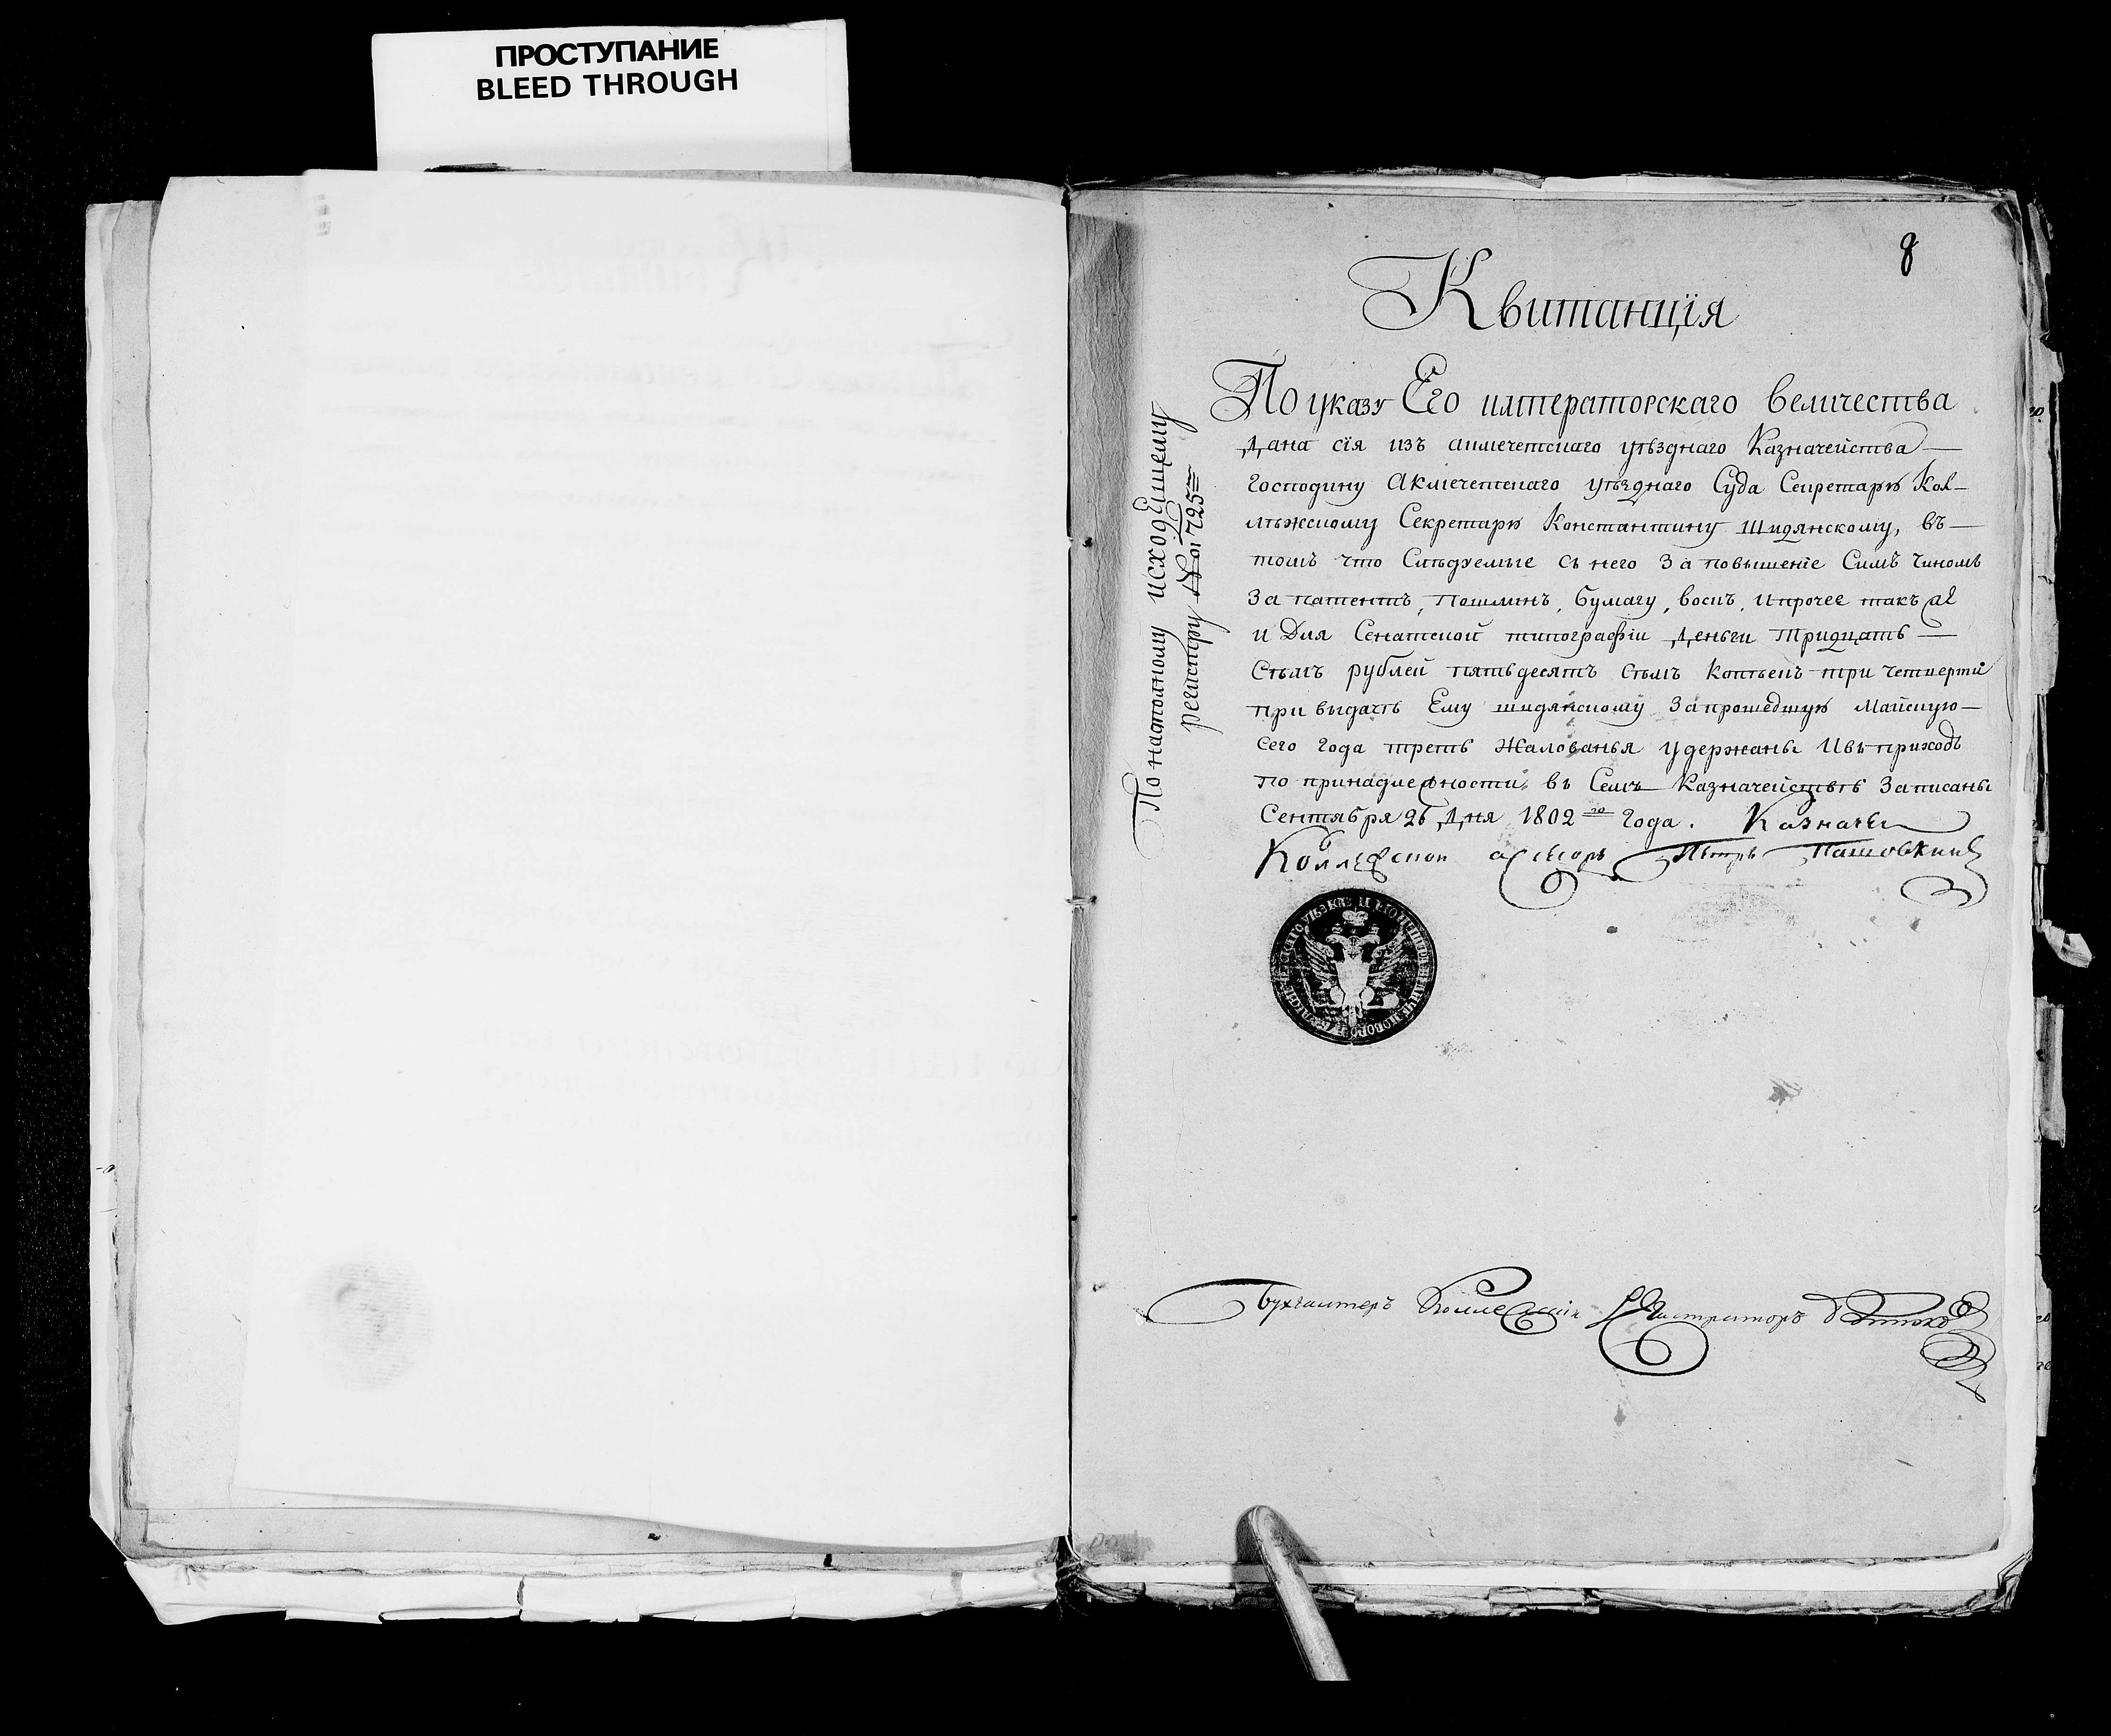 ПРОСТУПАНИЕ
BLEED THROUGH
8
Квитанція
По указу Его императорскаго величества
Дана сія изъ акмечетскаго уѣзднаго Казначейства
Господину Акмечетскаго уѣзднаго Суда Секретарю Кол-
лѣжскому Секретарю Константину Шидянскому, въ
томъ что Слѣдуемые съ него За повышеніе Симъ Чиномъ
За патентъ, Пошлинъ, бумагу, воскъ, ипрочее такъ
и Для Сенатской типографіи Деньги Тридцать
Сѣмъ рублей пятьдесятъ Сѣмъ Копѣекъ три четверти
при выдачѣ Ему шидянскому Запрошедшую Майскую
сего Года треть Жалованья удержаны Ивъ приходъ
по принадлежности въ Семъ Казначействѣ Записаны
Сентября 26 Дня 1802го Года. Казначей
Коллежской асесоръ Пѣтръ
По настолному исходЕщему
регистру № 725
Бухгалтеръ Коллежскій Регистраторъ